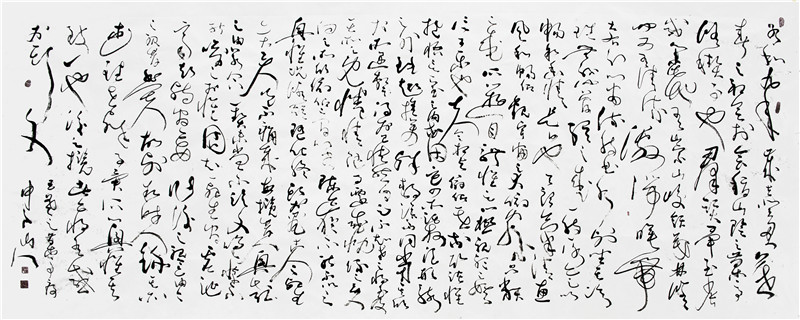 永和九年歲在癸丑暮
春之初會于會稽山陰之蘭亭
修禊事也群賢畢至少長
咸集此地有崇山峻領茂林修竹
又有清流激湍映帶
左右引以為流觴曲水列坐其次
雖無絲竹管弦之盛一觴一詠亦足以
暢敘幽情是日也天朗氣清惠
風和暢仰觀宇宙之大俯察品類
之盛所以遊目騁懷足以極視聽之娛
信可樂也夫人之相與俯仰一世或取諸懷
抱悟言一室之內或因寄所託放浪形骸
之外雖趣舍萬殊靜躁不同當其欣
於所遇暫得於己快然自足不知老之將至
及其所之既倦情隨事遷感慨係之矣
向之所欣俛仰之間已為陳跡猶不能不以之
興懷況修短隨化終期於盡古人云死生
亦大矣豈不痛哉每覽昔人興感
之由若合一契未嘗不臨文嗟悼不
能喻之於懷固知一死生為虛誕
齊彭殤為妄作後之視今亦由今
之視昔悲夫故列敘時人錄其所
述雖世殊事異所以興懷其
致一也後之覽者亦將有感
於斯文